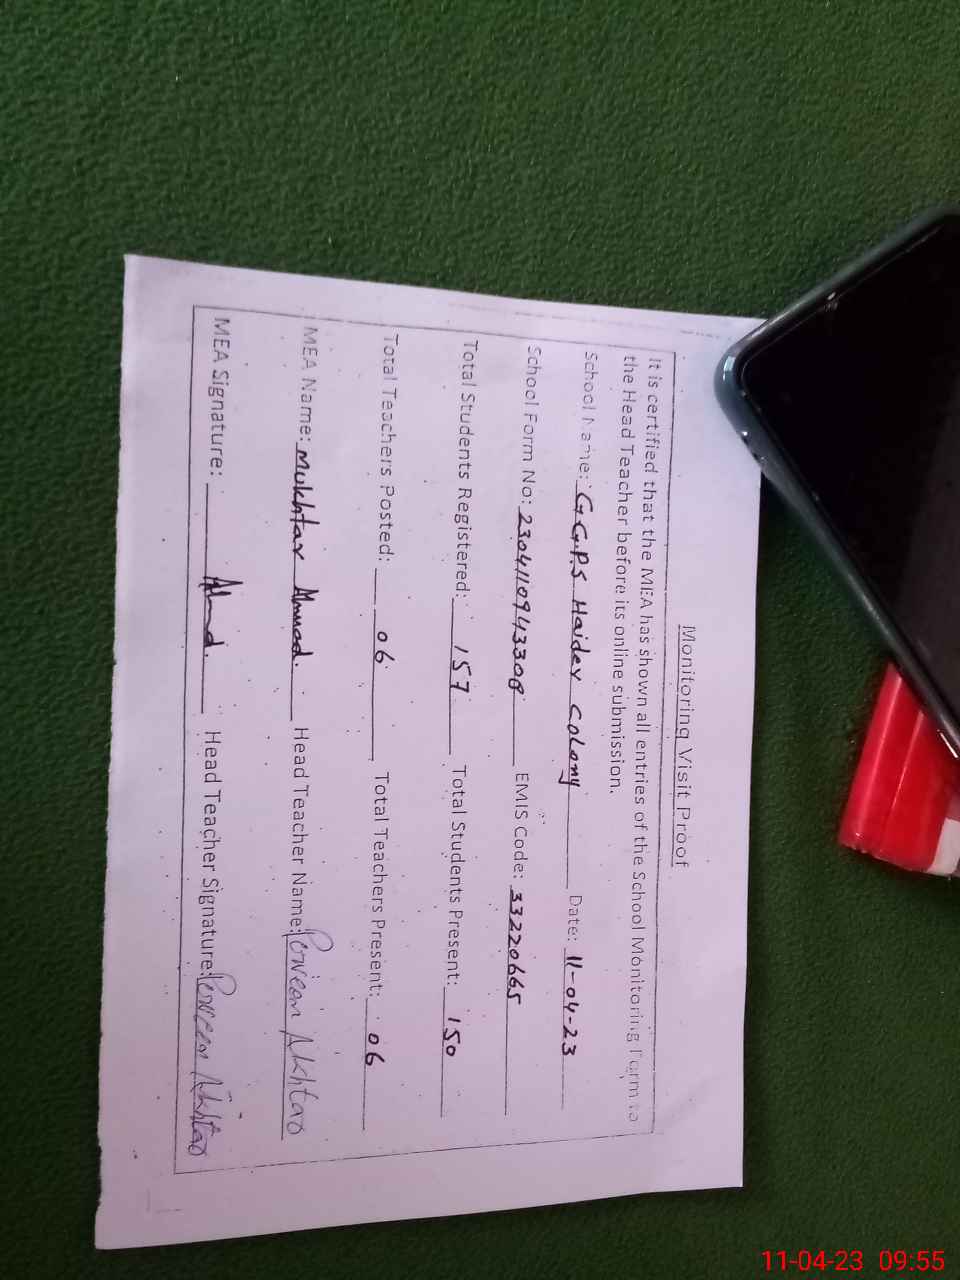 Monitoring Visit Proof
It is certified that the MEA has shown all entries of the School Monitoring Form to
the Head Teacher before its online submission.
School Name: G.G.P.S Haider Colony Date: 11-04-23
School Form No: 2304110943308 EMIS Code: 33220665
Total Students Registered: 157 Total Students Present: 150
Total Teachers Posted: 06 Total Teachers Present: 06
MEA Name: Mukhtar Ahmad. Head Teacher Name: Perveen Akhtar
MEA Signature: Ahmad. Head Teacher Signature: Perveen Akhtar
11-04-23 09:55